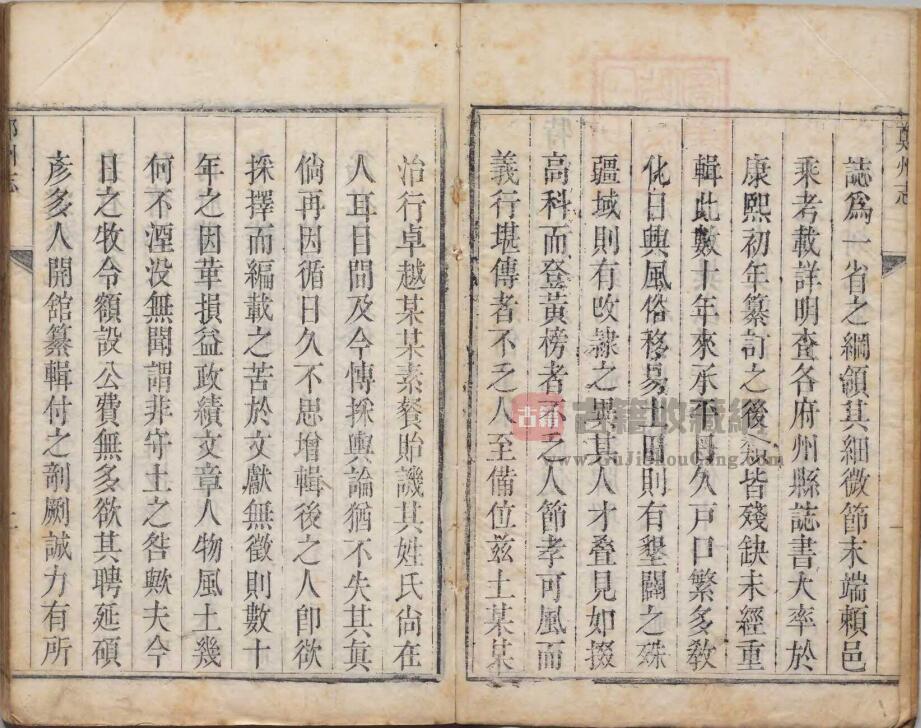 鄭州志
誌爲一省之綱領其細微節末端頼邑
乘考載詳明查各府州縣誌書大率於
康熙初年纂訂之後類皆殘缺未經重
輯此數十年來承平日久戸口繁多敎
化日興風俗移易土田則有墾闢之殊
疆域則有改隷之異其人才叠見如掇
高科而登黃榜者不乏人節孝可風而
義行堪傳者不乏人至備位兹土某某
治行卓越某某素餐貽譏其姓氏尚在
人耳目間及今愽採輿論猶不失其眞
倘再因循日久不思增輯後之人卽欲
採擇而編載之苦於文獻無徵則數十
年之因革損益政績文章人物風土幾
何不湮没無聞謂非守土之咎歟夫今
日之牧令額設公費無多欲其聘延碩
彥多人開館纂輯付之剞劂誠力有所
州志
古籍
古籍收藏網
www.GuJiShouCang.com